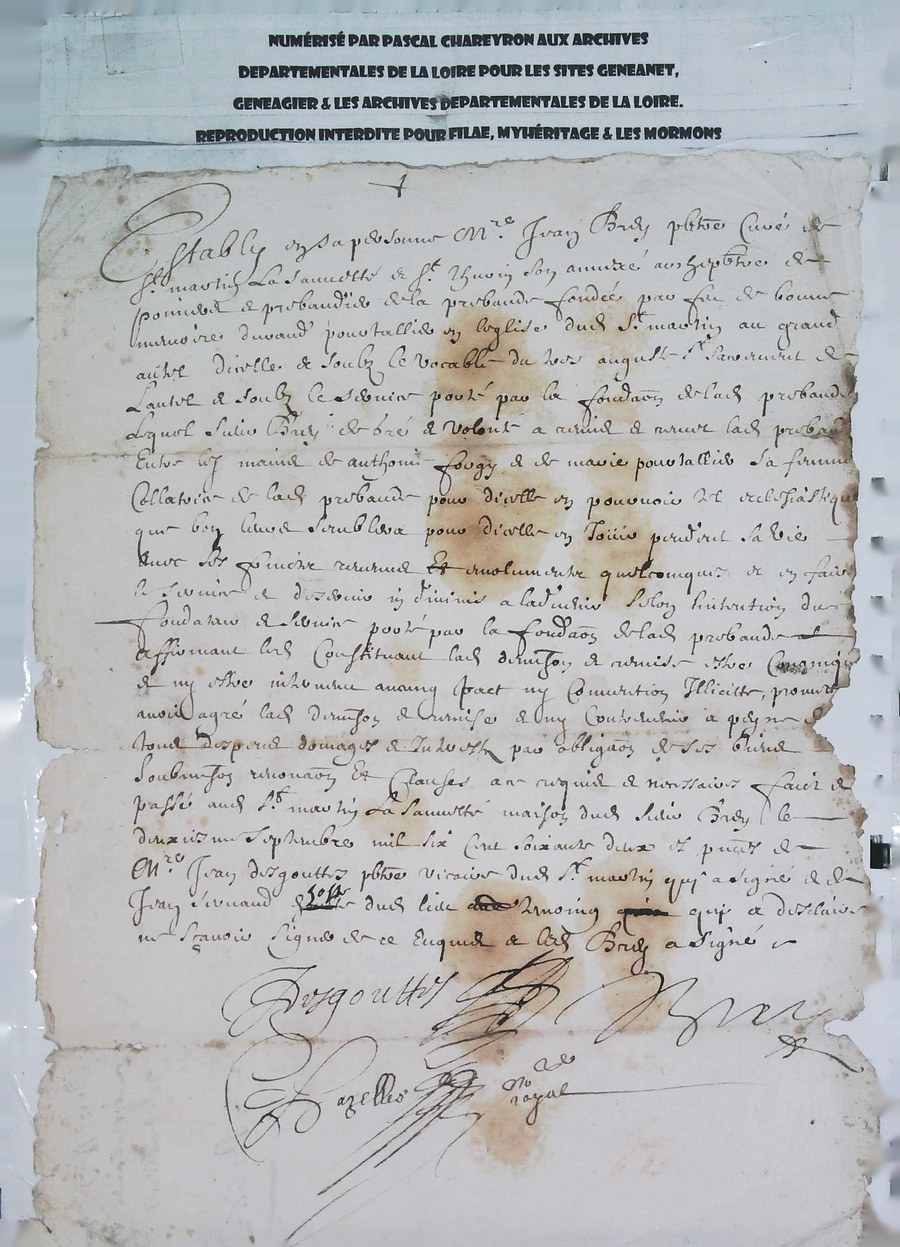 NUMÉRISÉ PAR PASCAL CHAREYRON AUX ARCHIVES
DEPARTEMENTALES DE LA LOIRE POUR LES SITES GENEANET,
GENEAGIER & LES ARCHIVES DEPARTEMENTALES DE LA LOIRE.
REPRODUCTION INTERDITE POUR FILAE, MYHÉRITAGE & LES MORMONS
Estably en sa personne Mre Jean Brey pbtre Curé de
St martin La Sauvetté & St Thurin son annexé archipbtre de
pommiers & prebandier de la prebande fondée par feu de bonne
memoire durand pourtallier en leglise dud St martin au grand
autel dicelle & soubz le vocable du tres auguste St Sacrement de
Lautel & soubz le service porté par la fondaon de lad prebande
Lequel sieur Brey de gré & volonté a remis & remet lad preban
Entre les mains de anthoine forgy & de marie pourtallier sa femme
Collatrice de lad prebande pour dicelle en pourvoir tel eclesiastique
que bon leur semblera pour dicelle en Jouir pendent sa vie
Avec ses fruictz revenus Et emolumentz quelconques et en faire
le service & deservir in divinis a ladvenir selon lintention du
fondateur & service porté par la fondaon de lad prebande
affirmant led Constituant lad demission & remise estre Canoniq
& ny estre intervenu aucung pact ny Convention Illicitte, promet
avoir agré lad demission & remise & ny Contrevenir a peyne de
tous despens domages & Interestz par obligaon de ses biens
Soubmission renonaon Et Clauses a ce requises & necessaires faict &
passé aud St martin La Sauvetté maison dud sieur Brey le
deuxiesme Septembre mil six Cent soixante deux es pnces de
Mre Jean desgouttes pbtre vicaire dud St martin qui a signé & de
Jean dud lieu qui a desclaire
ne scavoir signer de ce Enquis & led Brey a signé
Desgouttes Brey
Dazelles no re
royal